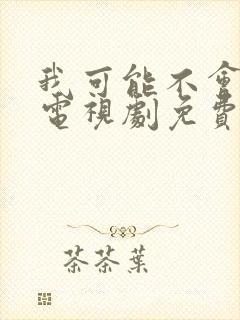 我可能不會
電視劇免費
茶茶葉